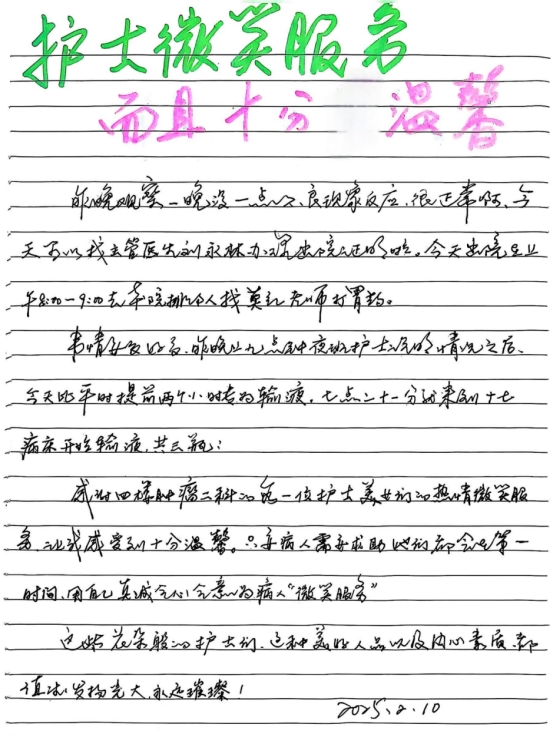 护士微笑服务
而且十分 温馨
昨晚观察一晚没一点不良现象反应,很正常啊,今
天可以找主管医生刘永林办理出院证明啦。今天出院上
午8:00-9:00去 找 老师打胃药。
事情 好,昨晚上九点钟夜班护士说明情况之后,
今天比平时提前两个小时专为输液,七点二十一分就来到十七
病床开始输液,共三瓶;
感谢四楼肿瘤二科的每一位护士美女们的热情微笑服
务,让我感受到十分温馨。只要病人需要求助她们都会在第一
时间,用自己真诚全心全意的为病人“微笑服务”
这些花朵般的护士们,这种美好人品以及内心素质,都
值得发扬光大,永远璀璨!
2025.2.10